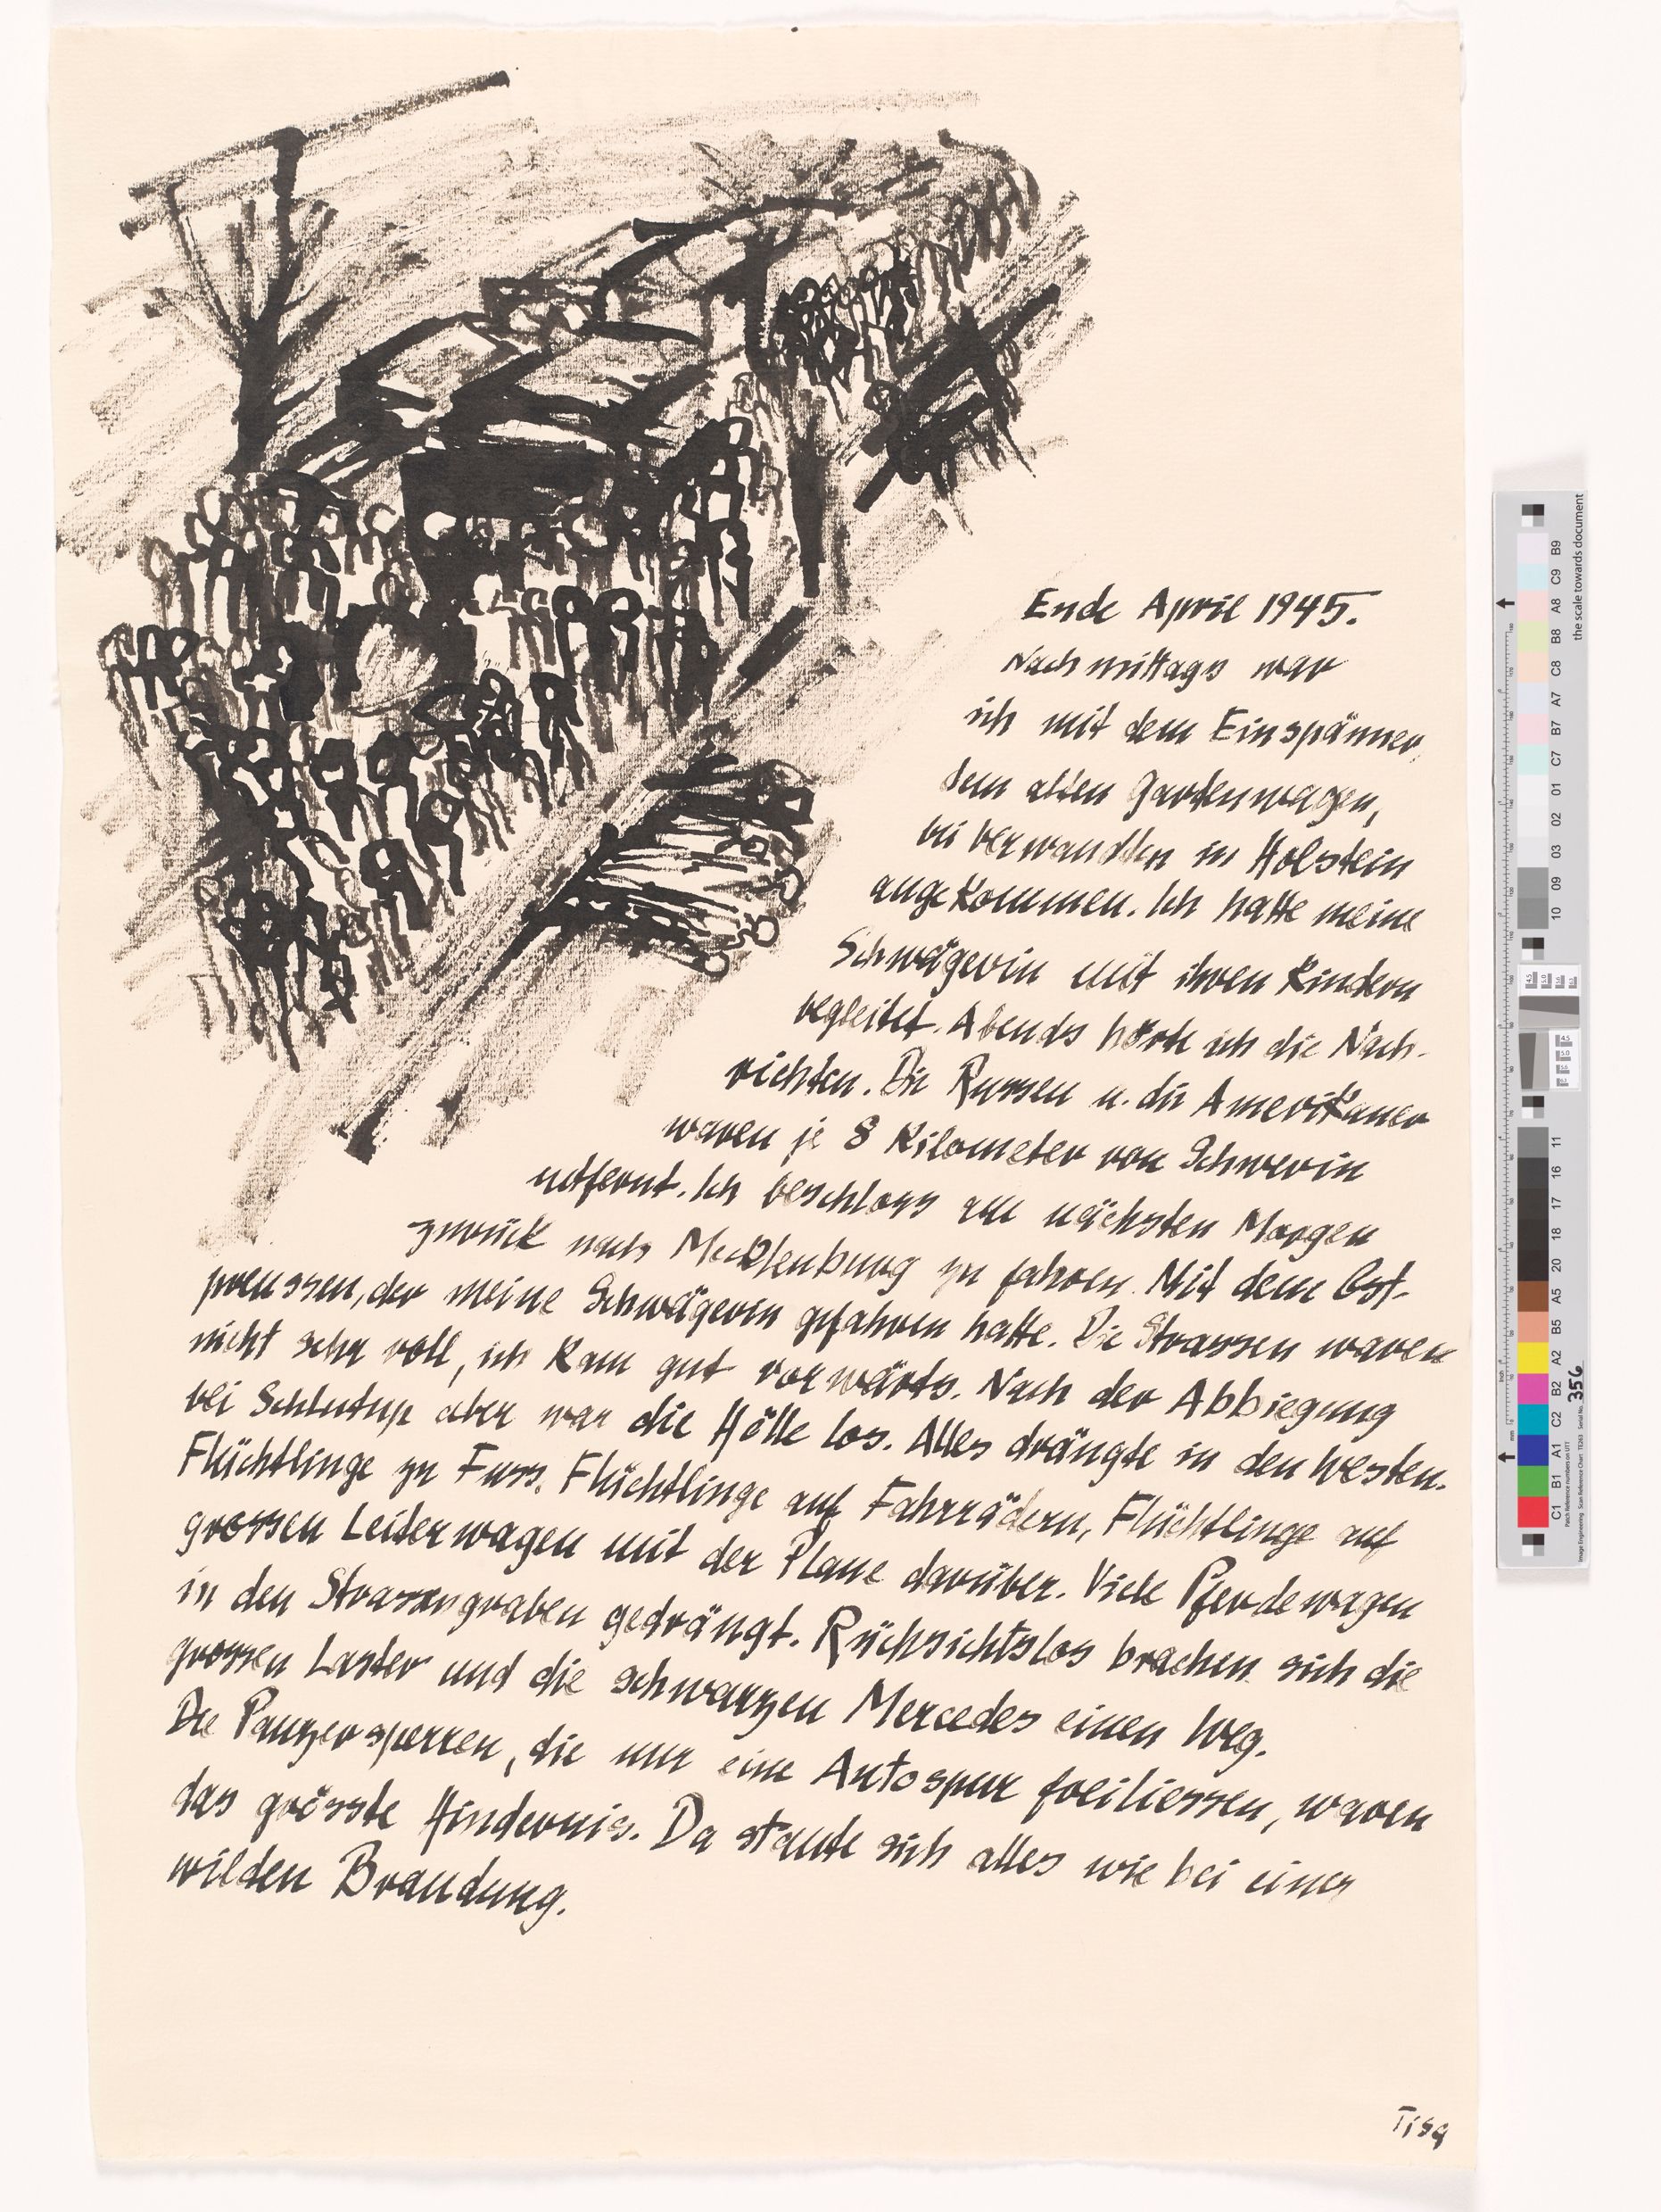 Ende April 1945.
Nachmittags war
ich mit dem Einspänner,
dem alten Gartenwagen,
bei Verwandten in Holstein
angekommen. Ich hatte meine
Schwägerin mit ihren Kindern
begleitet. Abends hörte ich die Nach-
richten. Die Russen u. die Amerikaner
waren je 8 Kilometer von Schwerin
entfernt. Ich beschloss am nächsten Morgen
zurück nach Mecklenburg zu fahren. Mit dem Ost-
preussen, der meine Schwägerin gefahren hatte. Die Strassen waren
nicht sehr voll, ich kam gut vorwärts. Nach der Abbiegung
bei Schlutup aber war die Hölle los. Alles drängte in den Westen.
Flüchtlinge zu Fuss, Flüchtlinge auf Fahrrädern, Flüchtlinge auf
grossen Leiterwagen mit der Plane darüber. Viele Pferdewagen
in den Strassengraben gedrängt. Rücksichtslos brachen sich die
grossen Laster und die schwarzen Mercedes einen Weg.
Die Panzersperren, die nur eine Autospur freiliessen, waren
das grösste Hindernis. Da staute sich alles wie bei einer
wilden Brandung.
Tisa
the scale towards document
B9
C9
A8
B8
C8
A7
B7
C7
01
02
03
09
10
11
16
17
18
20
A5
B5
A2
B2
C2
A1
B1
C1
356